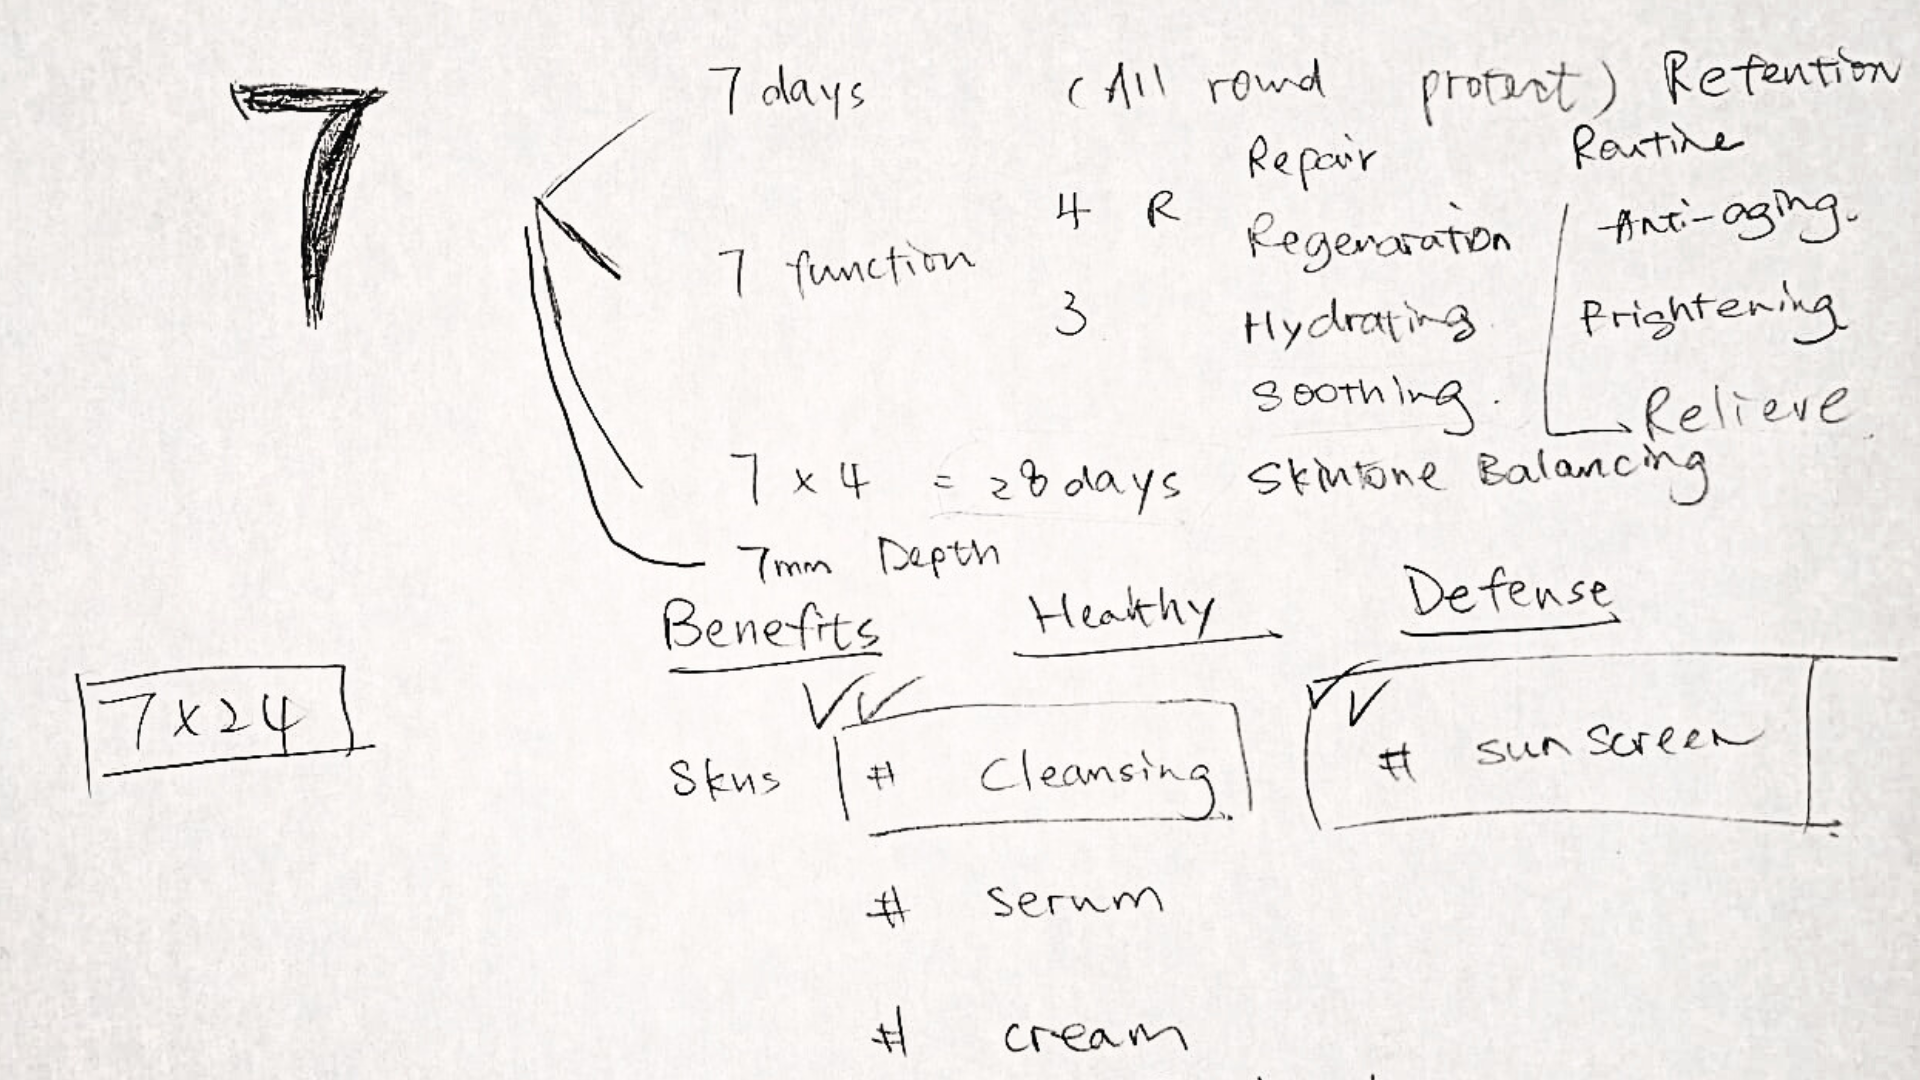 7
7 days (All round protect) Retention
Repair Routine
4 R
Regenaration Anti-aging.
7 function
3 Hydrating Brightening
Soothing. Relieve
7 x 4 = 28 days Skintone Balancing
7mm Depth
Benefits Healthy Defense
7x24
Skus # Cleansing # sunscreen
# serum
# cream